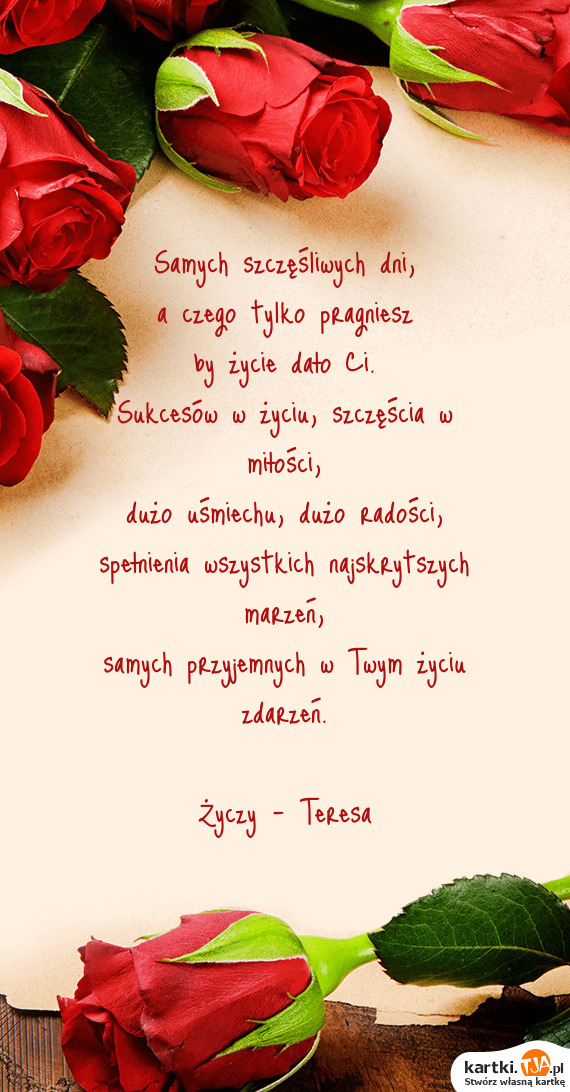 Samych szczęśliwych dni,
a czego tylko pragniesz
by życie dało Ci.
Sukcesów w życiu, szczęścia w
miłości,
dużo uśmiechu, dużo radości,
spełnienia wszystkich najskrytszych
marzeń,
samych przyjemnych w Twym życiu
zdarzeń.
Życzy - Teresa
kartki.TJA.pl
Stwórz własną kartkę